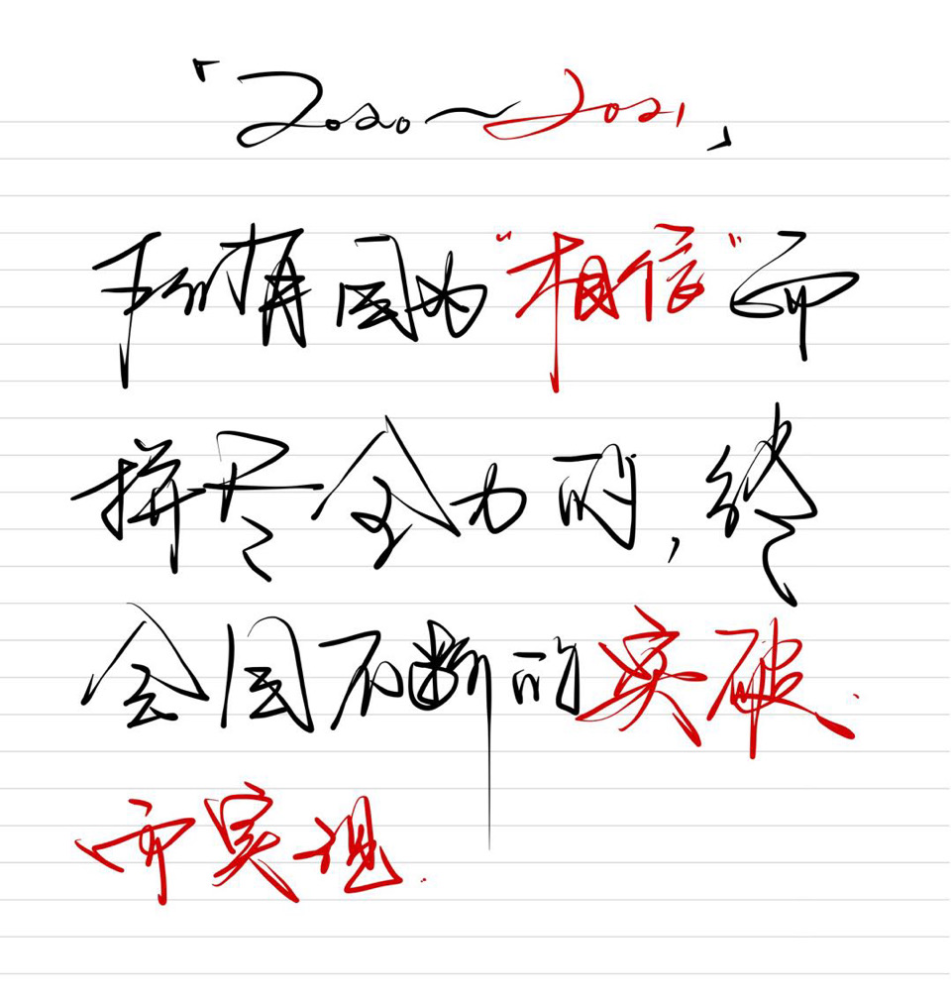 「2020~2021」
所有因为“相信”而
拼尽全力的,终
会因不断的突破.
而实现.